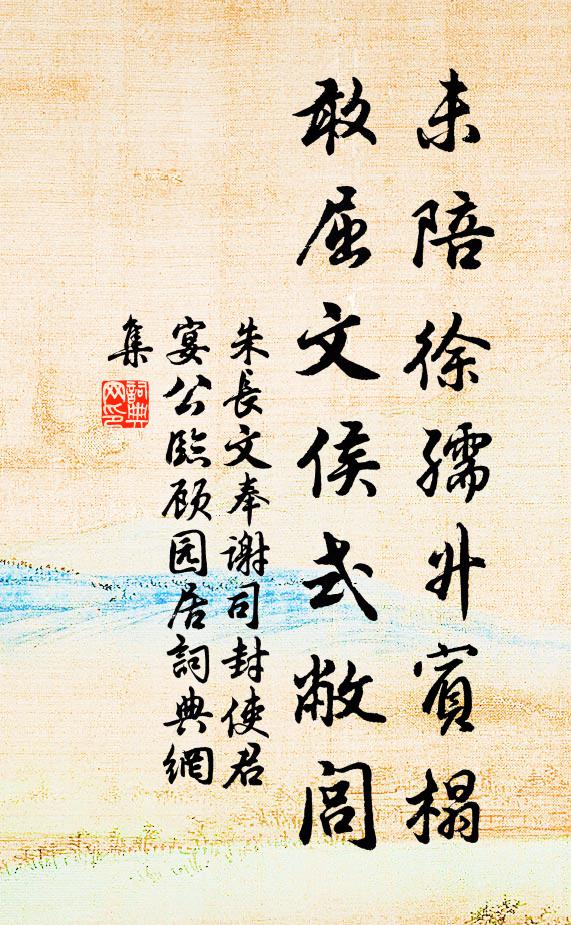 未陪徐孺升賓榻
敢屈文侯式敝閭
朱長文奉谢司封使君
宴公臨顾园居詞典網
集
詞典
网印